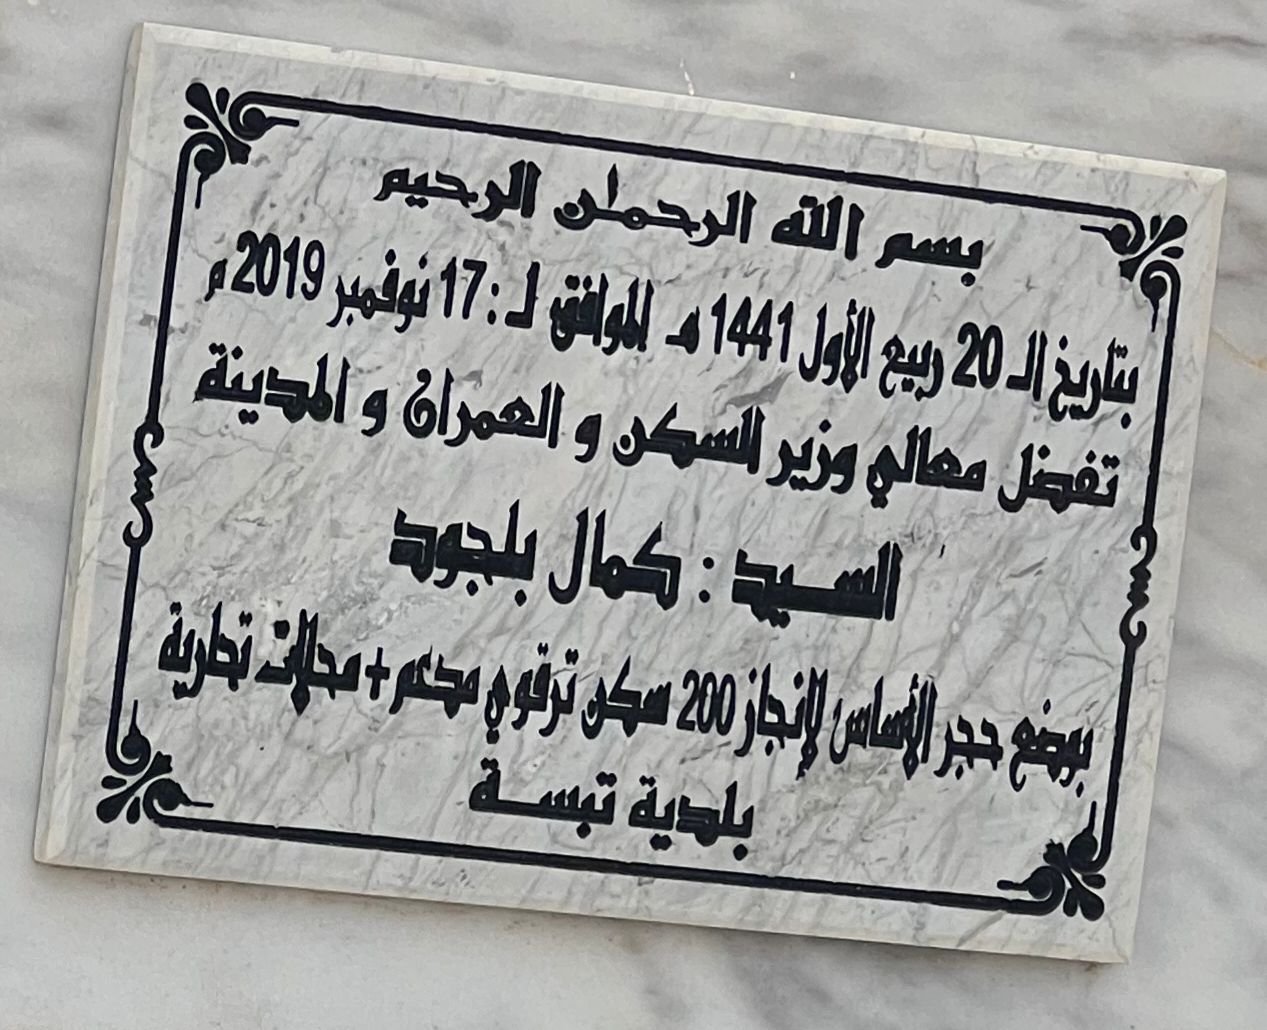 بسم الله الرحمان الرحيم
بتاريخ الـ 20 ربيع الأول 1441 هـ الموافق لـ : 17 نوفمبر 2019 م
تفضل معالي وزير السكن و العمران و المدينة
السيد : كمال بلجود
بوضع حجر الأساس لإنجاز 200 سكن ترقوي مدعم + محلات تجارية
بلدية تبسة